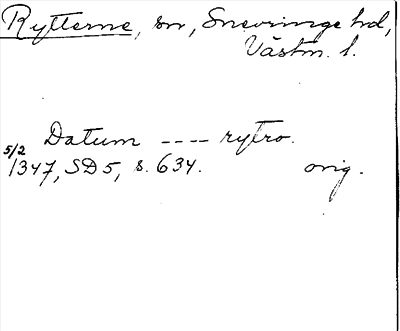 Rytterne, sn, Snevringe hd,
Västm. l.
Datum ---- rytro.
5/2
1347, SD5, s. 634. orig.